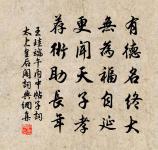 有德名終大
無為福自延
更聞天子孝
荐術助長年
王珪端午內中帖子詞
太上皇后閣詞典網集